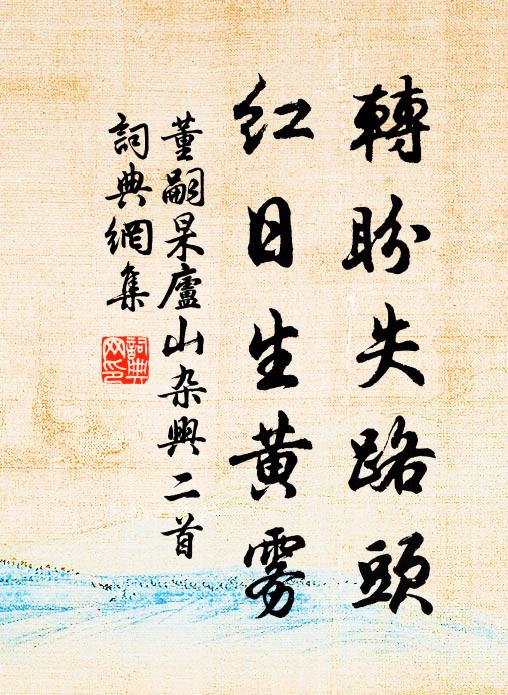 轉盼失路頭
紅日生黃雾
董嗣杲廬山杂興二首
詞典網集
詞典网印